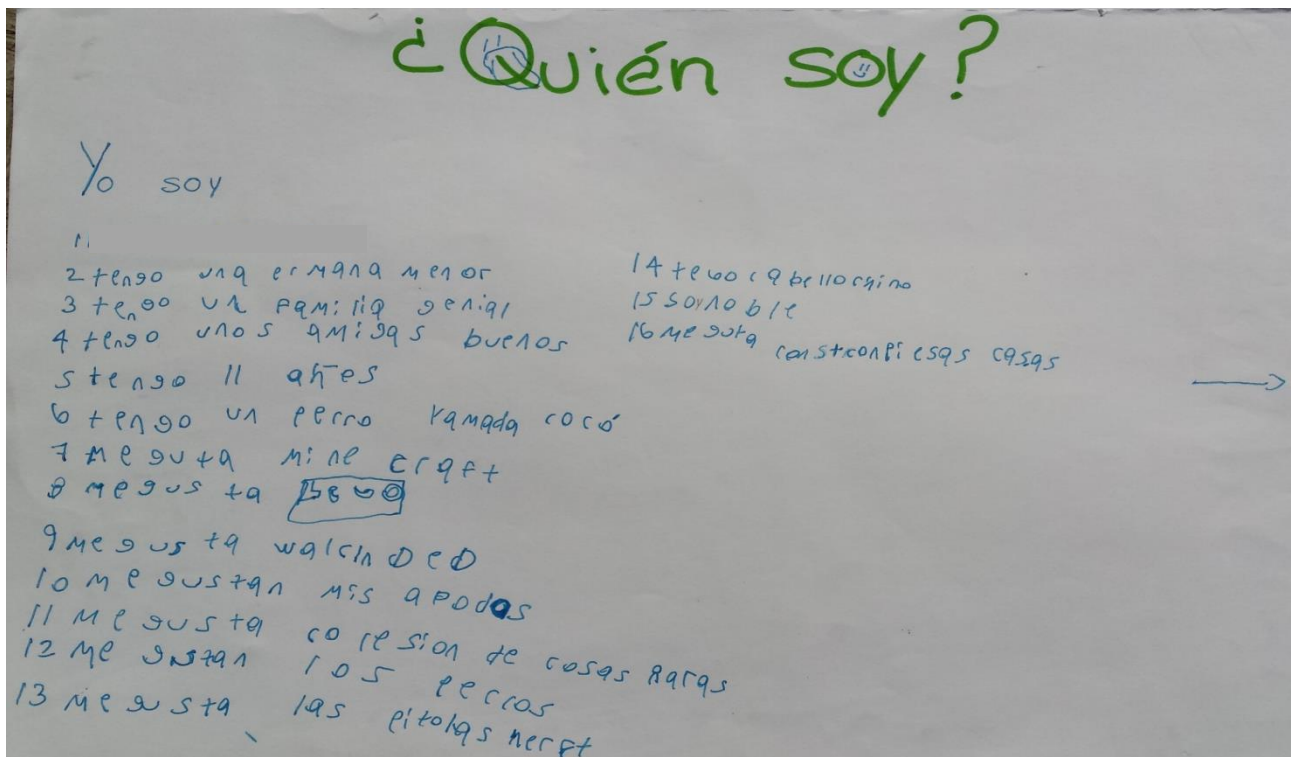 ¿Quién soy?
Yo soy
1
2 tengo una ermana menor
3 tengo un familia genial
4 tengo unos amigas buenos
5 tengo 11 añes
6 tengo un perro yamada cocó
7 me guta mine craft
8 me gus ta
9 me gus ta walcin DeD
10 me gustan mis apodos
11 me gusta colesion de cosas Raras
12 me gustan los perros
13 me gusta las pitolas nerft
14 tego cabello chino
15 soy noble
16 me guta const con piesas casas